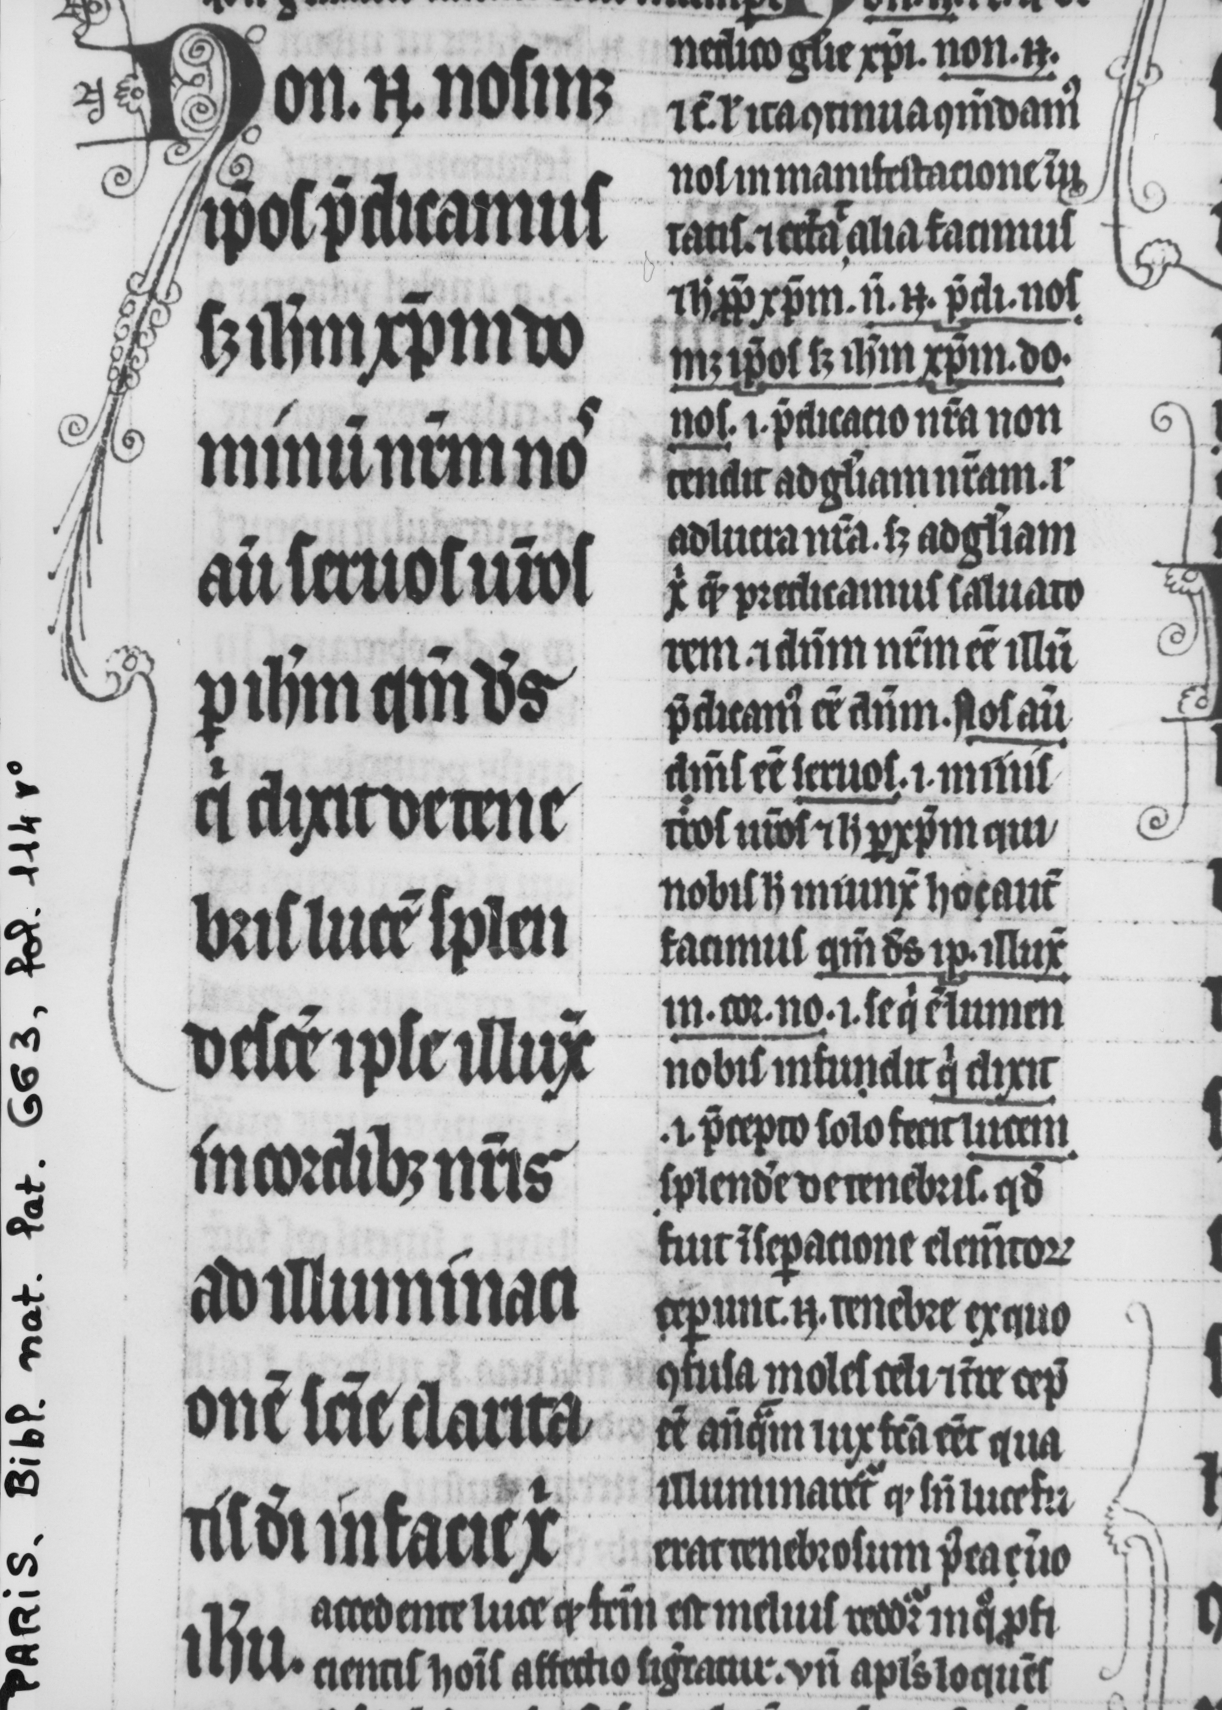 Non. n. nosmꝫ
ip̄os p̄dicamus
sꝫ ih̄m xp̄m do
minū nr̄m nos
aū seruos ur̄os
ꝑ ih̄m qm̄ ds̄
q̇ dixit de tene
bris lucē splen
descē ipse illux̄
in cordibꝫ nr̄is
ad illuminaci
onē scīe clarita
tis dī in facie x̄
ih̄u.
nedicto glīe xp̄i. non. n.
nos in manifestacione uī
tatis. ⁊ cetā alia facimus
⁊ h̄ ꝓp̄ xp̄m. n̄. n. p̄di. nos
mꝫ ip̄os sꝫ ih̄m xp̄m. do.
nos. i. p̄dicacio nr̄a non
tendit ad gl̄iam nr̄am. l'
ad lucra nr̄a. sꝫ ad gl̄iam
x̄ꝫ predicamus saluato
rem. ⁊ dn̄m nr̄m eē illū
p̄dicam⁹ eē dn̄m. Nos aū
dim̄s eē seruos. i. minis
t̄ros ur̄os ⁊ h̄ ꝑ xp̄m qui
nobis h̄ iniunx̄ hoc aut̄
facimus qm̄ ds̄ ip. illux̄
in. cor. no. i. se q̇ ē lumen
nobis infundit q̇ dixit
.i. p̄cepto solo fecit lucem
splendē de tenebris. qd̄
fuit ī seꝑacione elem̄toꝝ
ceꝑunt. n. tenebre ex quo
ꝯfusa moles celi ⁊ tr̄e cep̄
eē an̄q̄m lux fc̄a eēt qua
illuminaret̄ ꝙ sn̄ luce fu
erat tenebrosum p̄ea u̅o
accedente luce ꝙ fc̄m est melius
cientis hoīs affectio sigr̄atur. vn̄ apl̄s loquēs
PARIS. Bibl. nat. lat. 663, fol. 114 r°